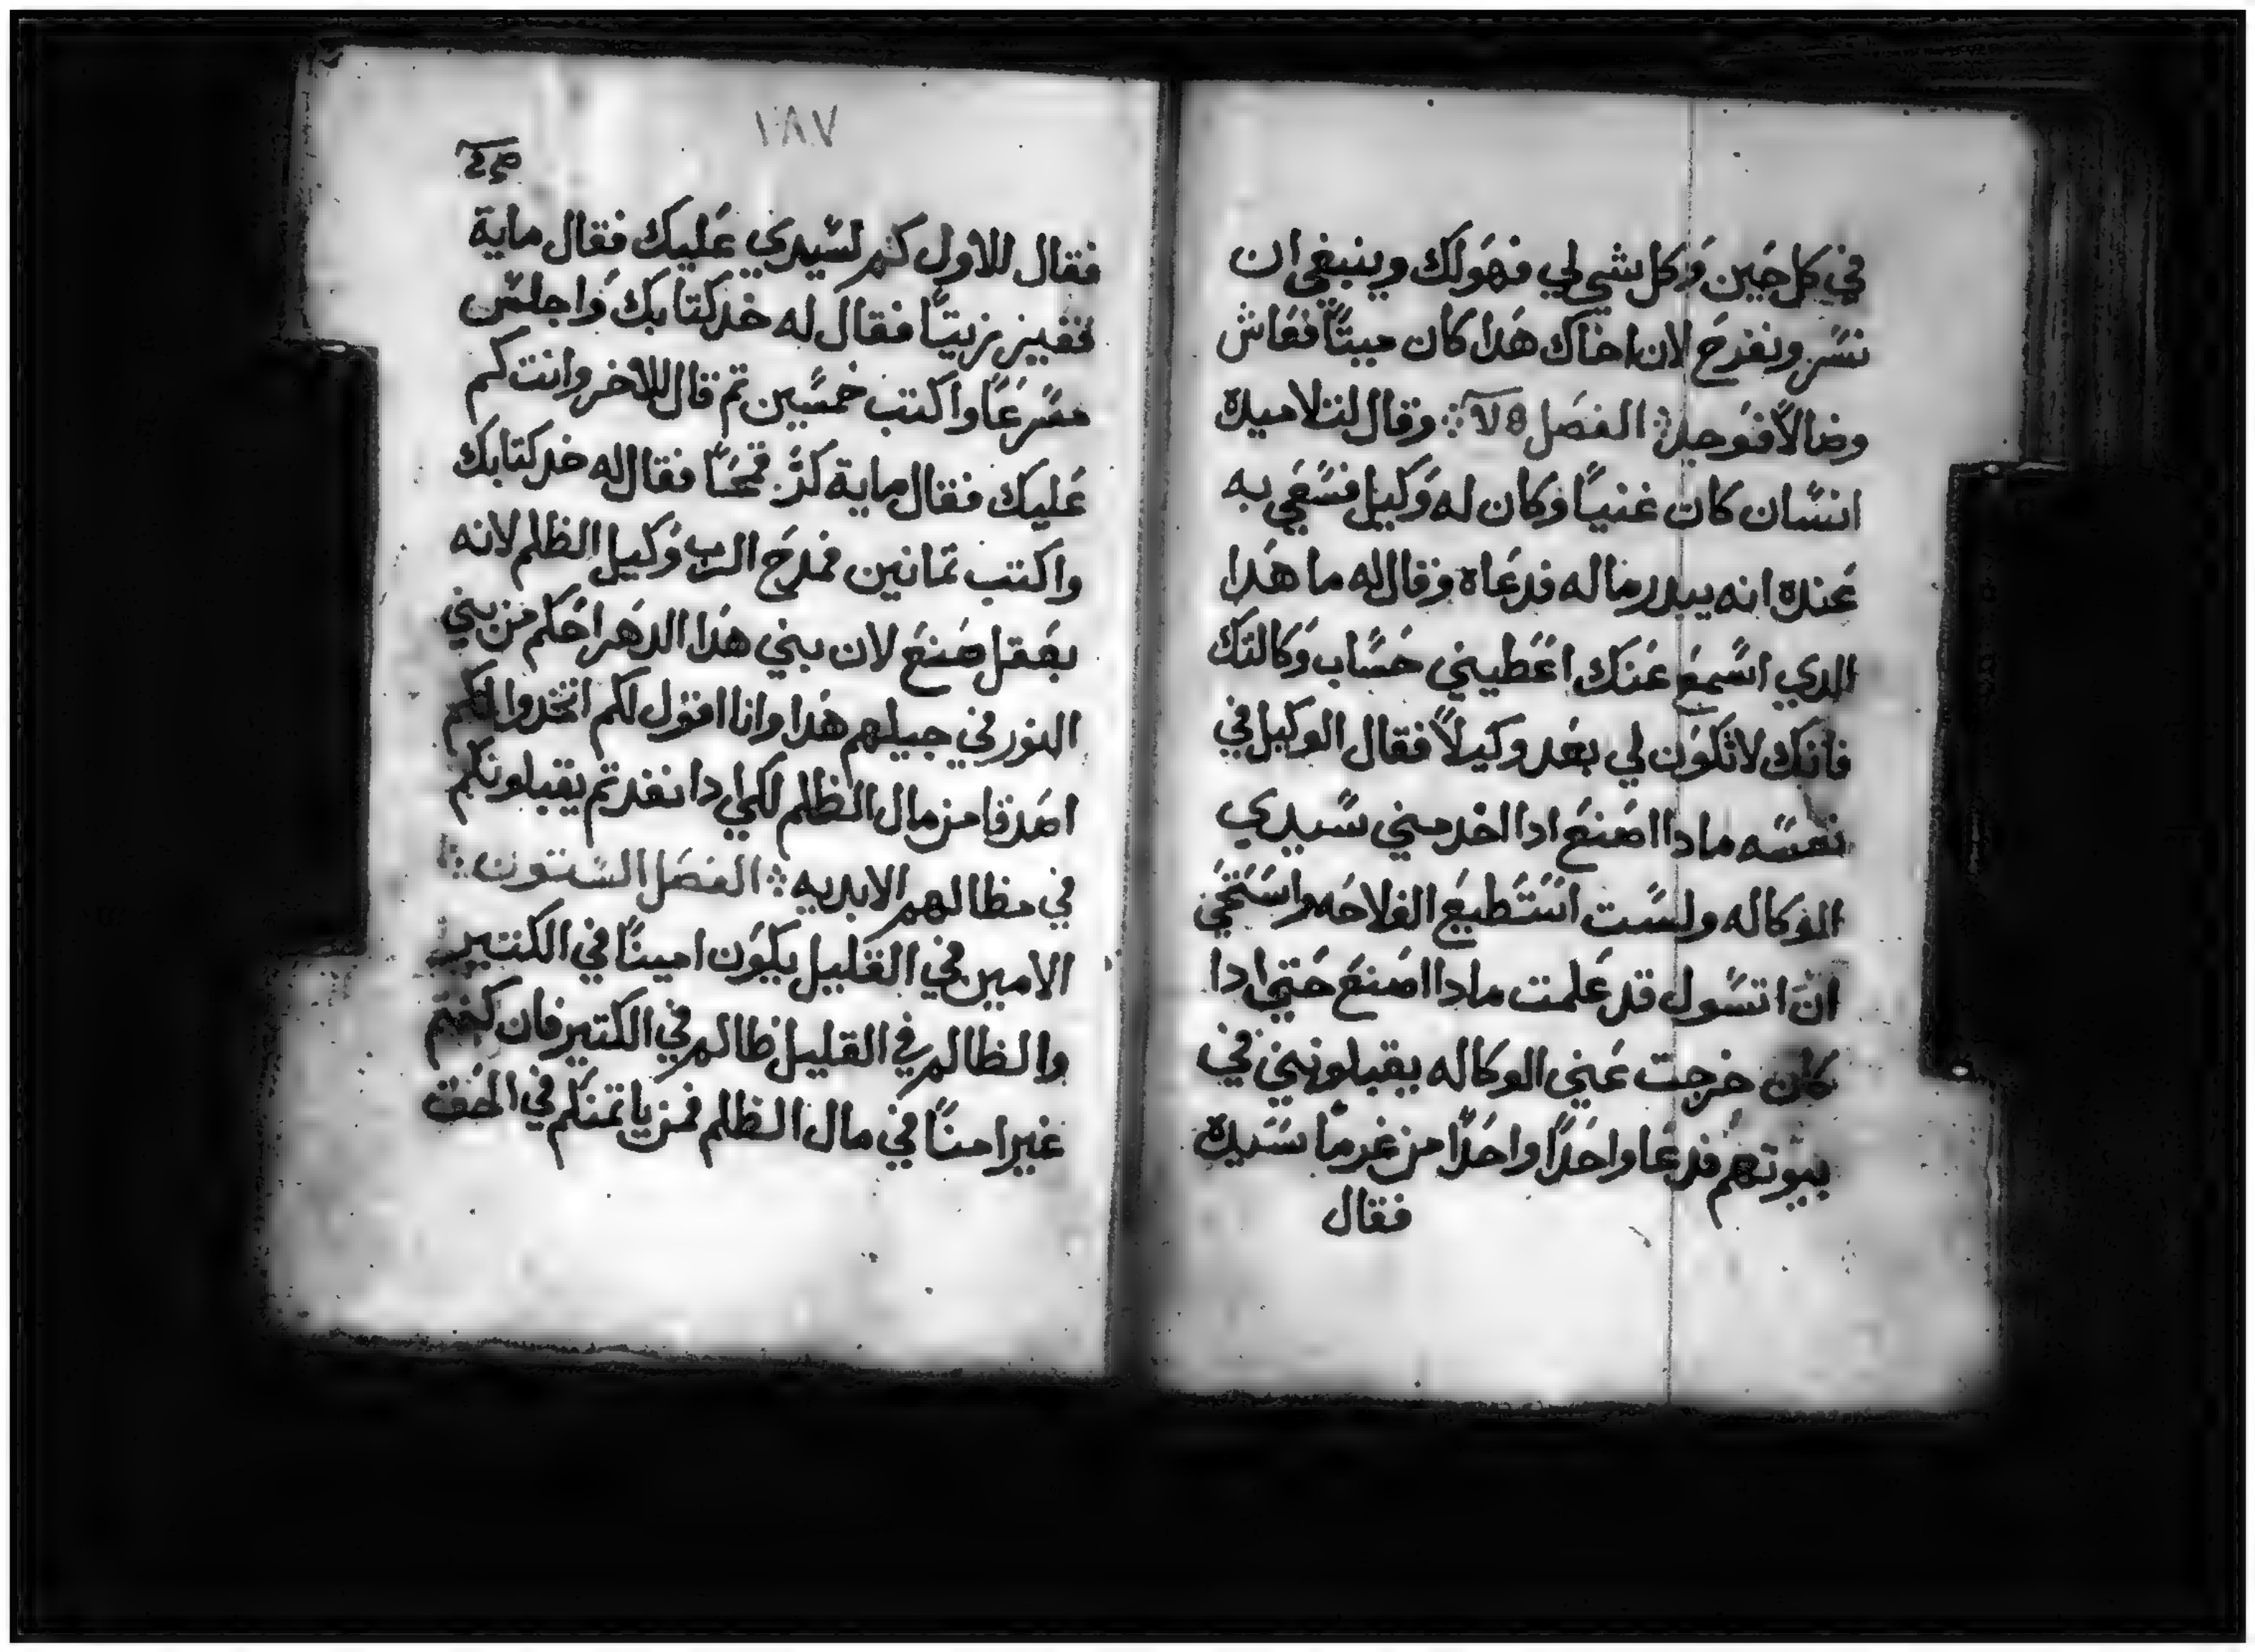 في كل حَين وَكل شي لي فهَولك وينبغي ان
نسَر ونفرحَ لان اخاك هَدا كان ميتًا فعَاش
وضالاً فوَجد الفصَل وقال لتلاميده
انسَان كان غنيًا وَكان له وَكيل فسَعَي به
عَنده انه يبدر ماله فدعَاه وَقال له ما هَدا
الدي اسَمعَ عَنك اعَطيني حَسَاب وَكالتك
فانك لا تكوَن لي بعَد وكيلاً فقال الوكيل في
نفسَه مادا اصَنعَ ادا اخد مني سَيدي
الوَكاله ولسَت استَطيعَ الفلاحَه واستَحَي
ان اتسَول قد عَلمت مادا اصَنعَ حَتي ادا
كان خرجت عَني الوكاله يقبلونني في
بيوَتهم فدعَا واحَدًا واحَدًا من غرما سَيده
فقال
١٨٧
فقال للاول كم لسَيدي عَليك فقال ماية
قفيز زيتًا فقال له خد كتابك وَاجلسَ
مسَرعَا واكتب خمسَين تم قال للاخر وانت كم
عَليك فقال ماية كرَ قمحَا فقال له خد كتابك
واكتب تمانين فمدحَ الرب وَكيل الظلم لانه
بعَقل صَنعَ لان بني هَدا الدهَر احَكم من بني
النور في جيلهم هَدا وانا اقوَل لكم اتخدوا لكم
اصَدقا من مال الظلم لكي ادا نفدتم يقبلونكم
في مظالهم الابديه الفصَل السَتون
الامين في القليل يكوَن امينًا في الكتير
والظالم في القليل ظالم في الكتير فان كنتم
غير امنًا في مال الظلم فمن ياتمنكم في الحَق